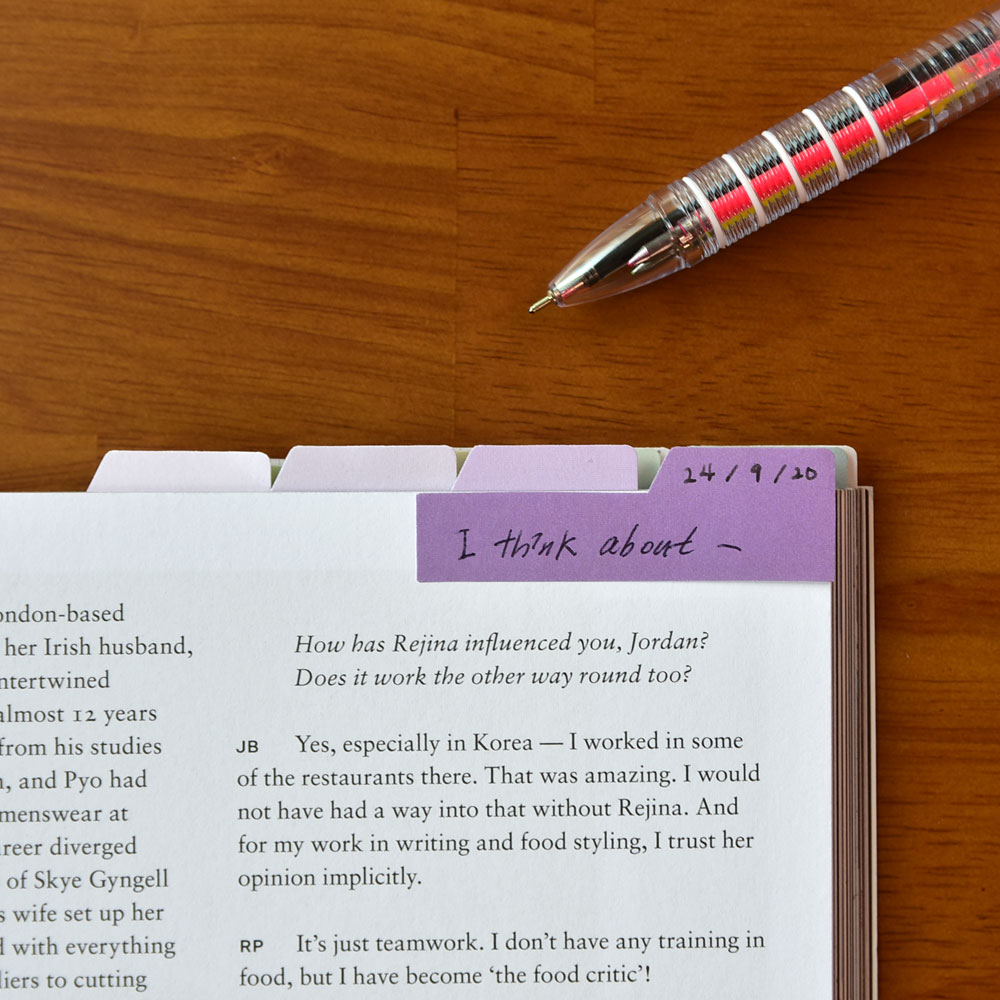 24/9/20
I think about —
ondon-based
her Irish husband,
ntertwined
almost 12 years
from his studies
, and Pyo had
menswear at
reer diverged
of Skye Gyngell
s wife set up her
d with everything
liers to cutting
How has Rejina influenced you, Jordan?
Does it work the other way round too?
JB Yes, especially in Korea — I worked in some
of the restaurants there. That was amazing. I would
not have had a way into that without Rejina. And
for my work in writing and food styling, I trust her
opinion implicitly.
RP It's just teamwork. I don't have any training in
food, but I have become ‘the food critic’!